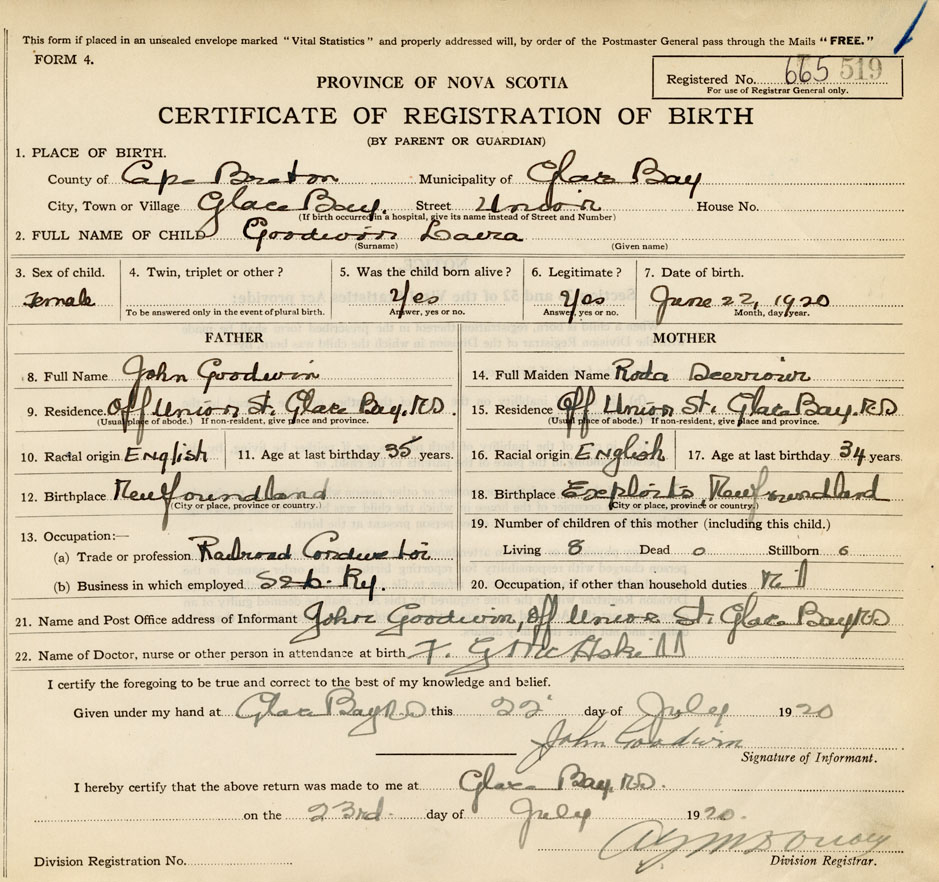 This form if placed in an unsealed envelope marked "Vital Statistics" and properly addressed will, by order of the Postmaster General pass through the Mails "FREE."
FORM 4.
Registered No. 665 519
For use of Registrar General only.
PROVINCE OF NOVA SCOTIA
CERTIFICATE OF REGISTRATION OF BIRTH
(BY PARENT OR GUARDIAN)
1. PLACE OF BIRTH.
County of Cape Breton Municipality of Glace Bay
City, Town or Village Glace Bay. Street Union House No.
(If birth occurred in a hospital, give its name instead of Street and Number)
2. FULL NAME OF CHILD Goodwin
(Surname) (Given name)
3. Sex of child. 4. Twin, triplet or other? 5. Was the child born alive? 6. Legitimate? 7. Date of birth.
Female Yes Yes June 22, 1920
To be answered only in the event of plural birth. Answer, yes or no. Answer, yes or no. Month, day, year.
FATHER MOTHER
8. Full Name John Goodwin 14. Full Maiden Name Roda
9. Residence Off Union St. Glace Bay, RD. 15. Residence Off Union St. Glace Bay, RD
(Usual place of abode.) If non-resident, give place and province. (Usual place of abode.) If non-resident, give place and province.
10. Racial origin English 11. Age at last birthday 35 years. 16. Racial origin English 17. Age at last birthday 34 years.
12. Birthplace Newfoundland 18. Birthplace Exploits, Newfoundland
(City or place, province or country.) (City or place, province or country.)
13. Occupation:— 19. Number of children of this mother (including this child.)
(a) Trade or profession Railroad Conductor Living 8 Dead 0 Stillborn 6
(b) Business in which employed S & L. Ry. 20. Occupation, if other than household duties Nil
21. Name and Post Office address of Informant John Goodwin, Off Union St. Glace Bay RD
22. Name of Doctor, nurse or other person in attendance at birth F. G McAskill
I certify the foregoing to be true and correct to the best of my knowledge and belief.
Given under my hand at Glace Bay RD this 22 day of July 1920
John Goodwin
Signature of Informant.
I hereby certify that the above return was made to me at Glace Bay, RD.
on the 23rd day of July 1920.
Division Registration No. Division Registrar.